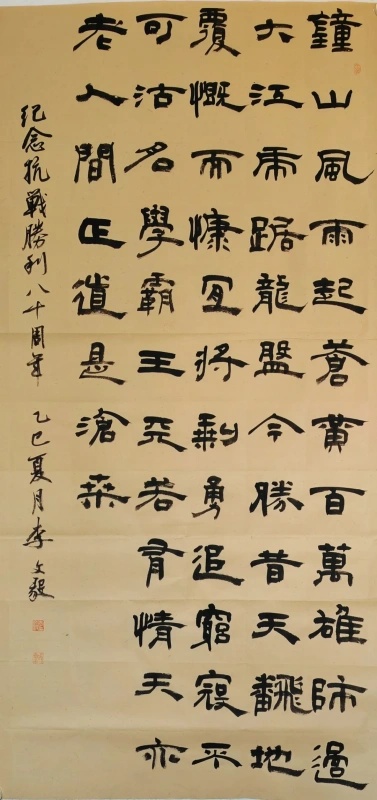 鐘山風雨起蒼黃百萬雄師過
大江虎踞龍盤今勝昔天飜地
覆慨而慷宜將剩勇追窮寇不
可沽名學霸王天若有情天亦
老人間正道是滄桑
紀念抗戰勝利八十周年 乙巳夏月李文毅